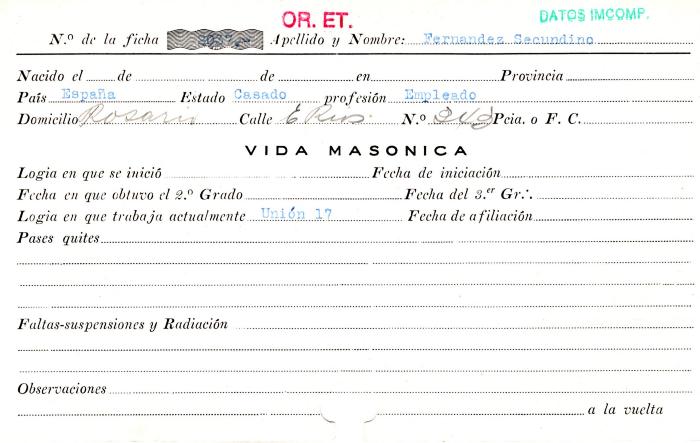 OR. ET.
DATOS IMCOMP.
N.º de la ficha Apellido y Nombre: Fernandez Secundino
Nacido el de de en Provincia
País España Estado Casado profesión Empleado
Domicilio Rosario Calle E Rios. N.º 343 Pcia. o F. C.
VIDA MASONICA
Logia en que se inició Fecha de iniciación
Fecha en que obtuvo el 2.º Grado Fecha del 3.er Gr∴
Logia en que trabaja actualmente Unión 17 Fecha de afiliación
Pases quites
Faltas-suspensiones y Radiación
Observaciones
a la vuelta